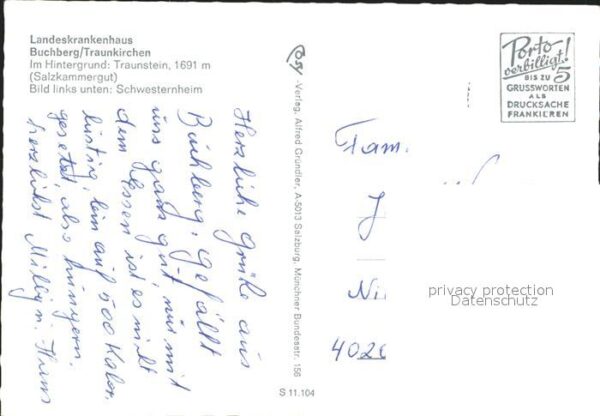 Landeskrankenhaus
Buchberg/Traunkirchen
Im Hintergrund: Traunstein, 1691 m
(Salzkammergut)
Bild links unten: Schwesternheim
Herzliche Grüße aus
Buchberg, gefällt
uns ganz gut, nur mit
dem Essen ist es nicht
lustig, bin auf 500 Kalor.
gesetzt, also hungern.
Herzlichst Milly u. Hans
Verlag Alfred Gründler, A-5013 Salzburg, Münchner Bundesstr. 156
S 11.104
Porto
verbilligt!
BIS ZU 5
GRUSSWORTEN
ALS
DRUCKSACHE
FRANKIEREN
Fam.
J
Ni
402
privacy protection
Datenschutz